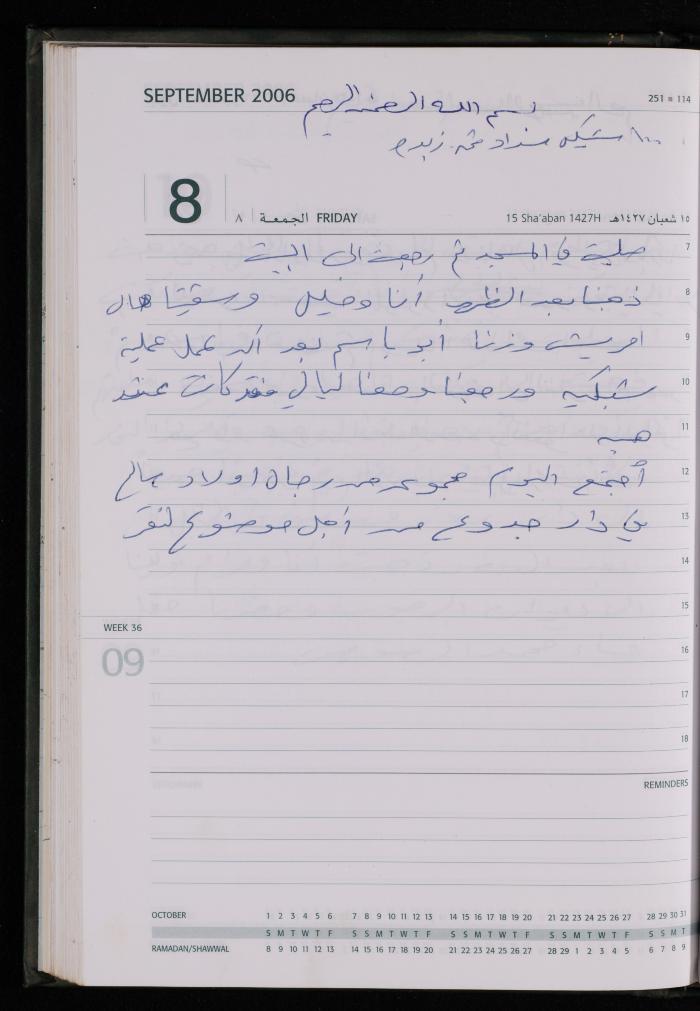 SEPTEMBER 2006
بسم الله الرحمن الرحيم
251 ■ 114
١٠٠ شيكل سداد زبدة
8
٨ الجمعة FRIDAY
15 Sha'aban 1427H ١٥ شعبان ١٤٢٧هـ
7 صليت في المسجد ثم رجعت الى البيت
8 ذهبنا بعد الظهر أنا وخليل وسقينا
9 وزرنا أبو باسم بعد عمل عملية
10 شبكيه ورجعنا وصفنا ليالي كانت عند
11 هبه
12 أجتمع اليوم مجموعه من رجال اولاد صالح
13 في دار جدوع من أجل موضوع
14
15
WEEK 36
09
16
17
18
REMINDERS
OCTOBER 1 2 3 4 5 6 7 8 9 10 11 12 13 14 15 16 17 18 19 20 21 22 23 24 25 26 27 28 29 30 31
S M T W T F S S M T W T F S S M T W T F S S M T W T F S S M T
RAMADAN/SHAWWAL 8 9 10 11 12 13 14 15 16 17 18 19 20 21 22 23 24 25 26 27 28 29 1 2 3 4 5 6 7 8 9